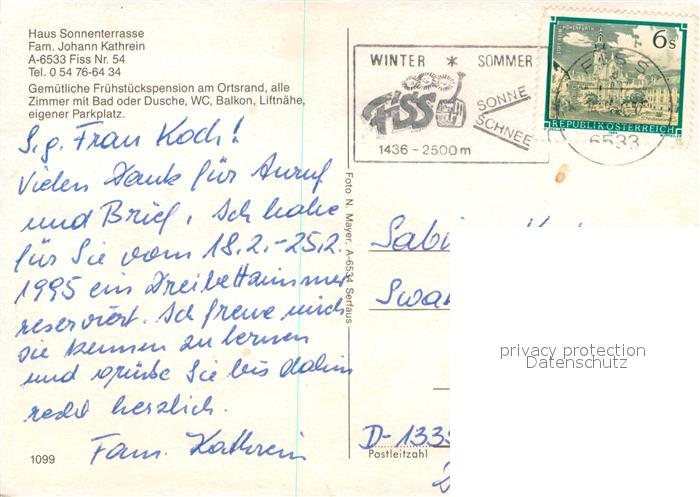 Haus Sonnenterrasse
Fam. Johann Kathrein
A-6533 Fiss Nr. 54
Tel. 0 54 76-64 34
Gemütliche Frühstückspension am Ortsrand, alle
Zimmer mit Bad oder Dusche, WC, Balkon, Liftnähe,
eigener Parkplatz.
S.g. Frau Koch!
Vielen Dank für Anruf
und Brief, Ich habe
für Sie vom 18.2.-25.2.
1995 ein Dreibettzimmer
reserviert. Ich freue mich
sie kennen zu lernen
und grüße Sie bis dahin
recht herzlich.
Fam. Kathrein
1099
Foto N. Mayer, A-6534 Serfaus
WINTER * SOMMER
FISS
SONNE
SCHNEE
1436-2500m
6 s
REPUBLIK ÖSTERREICH
6533
D-1335
Postleitzahl
privacy protection
Datenschutz